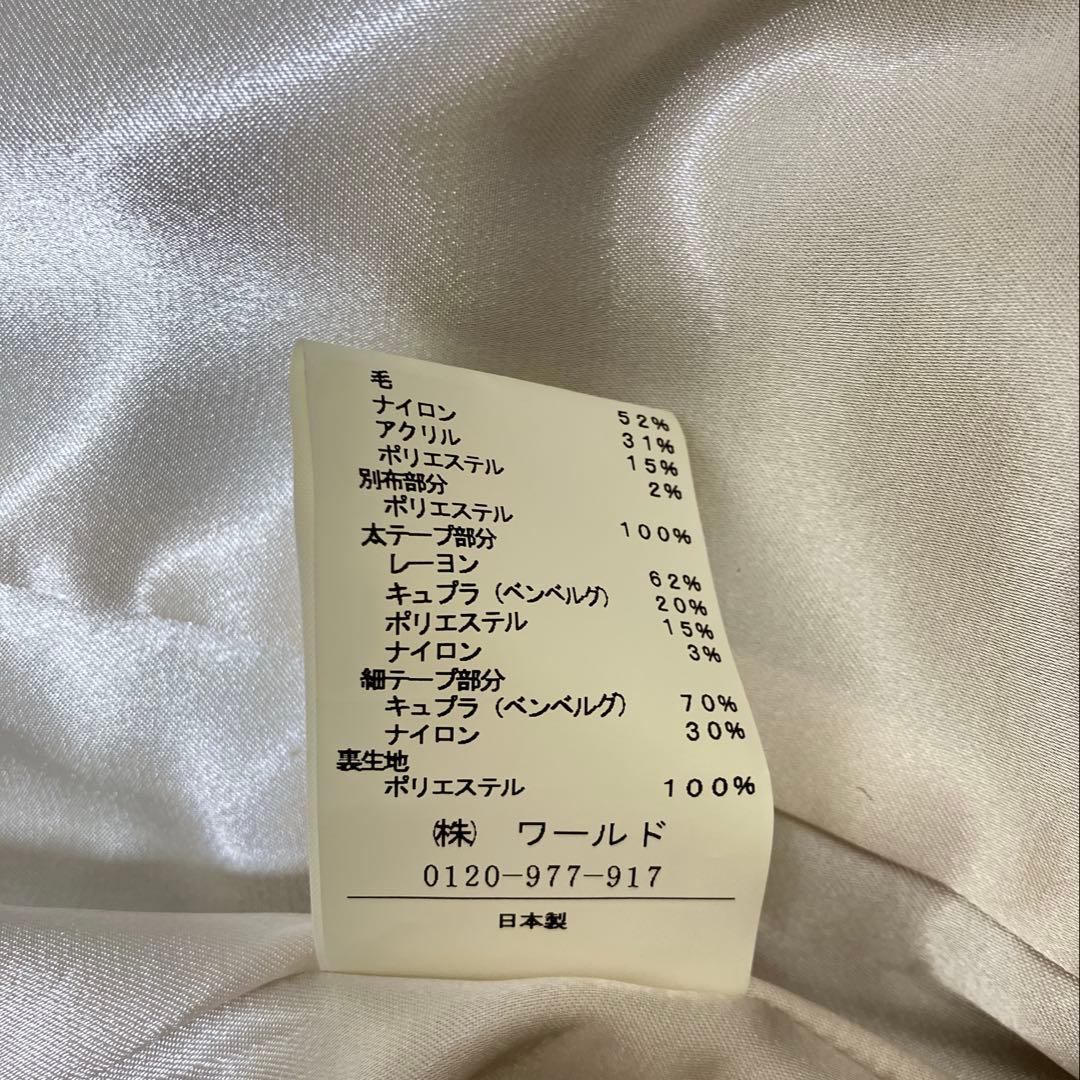 毛 52%
ナイロン 31%
アクリル 15%
ポリエステル 2%
別布部分
ポリエステル 100%
太テープ部分
レーヨン 62%
キュプラ(ベンベルグ) 20%
ポリエステル 15%
ナイロン 3%
細テープ部分
キュプラ(ベンベルグ) 70%
ナイロン 30%
裏生地
ポリエステル 100%
㈱ ワールド
0120-977-917
日本製